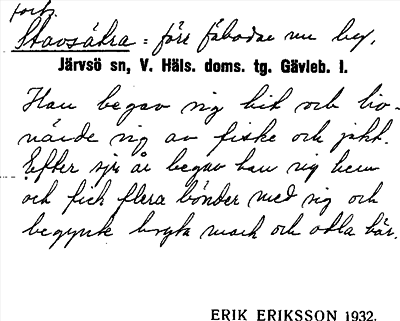 forts.
Stavsätra = förr fäbodar nu bey.
Järvsö sn, V. Häls. doms. tg. Gävleb. l.
Han begav sig hit och liv-
närde sig av fiske och jakt.
Efter sju år begav han sig hem
och fick flera bönder med sig och
begynte bryta mark och odla här.
ERIK ERIKSSON 1932.